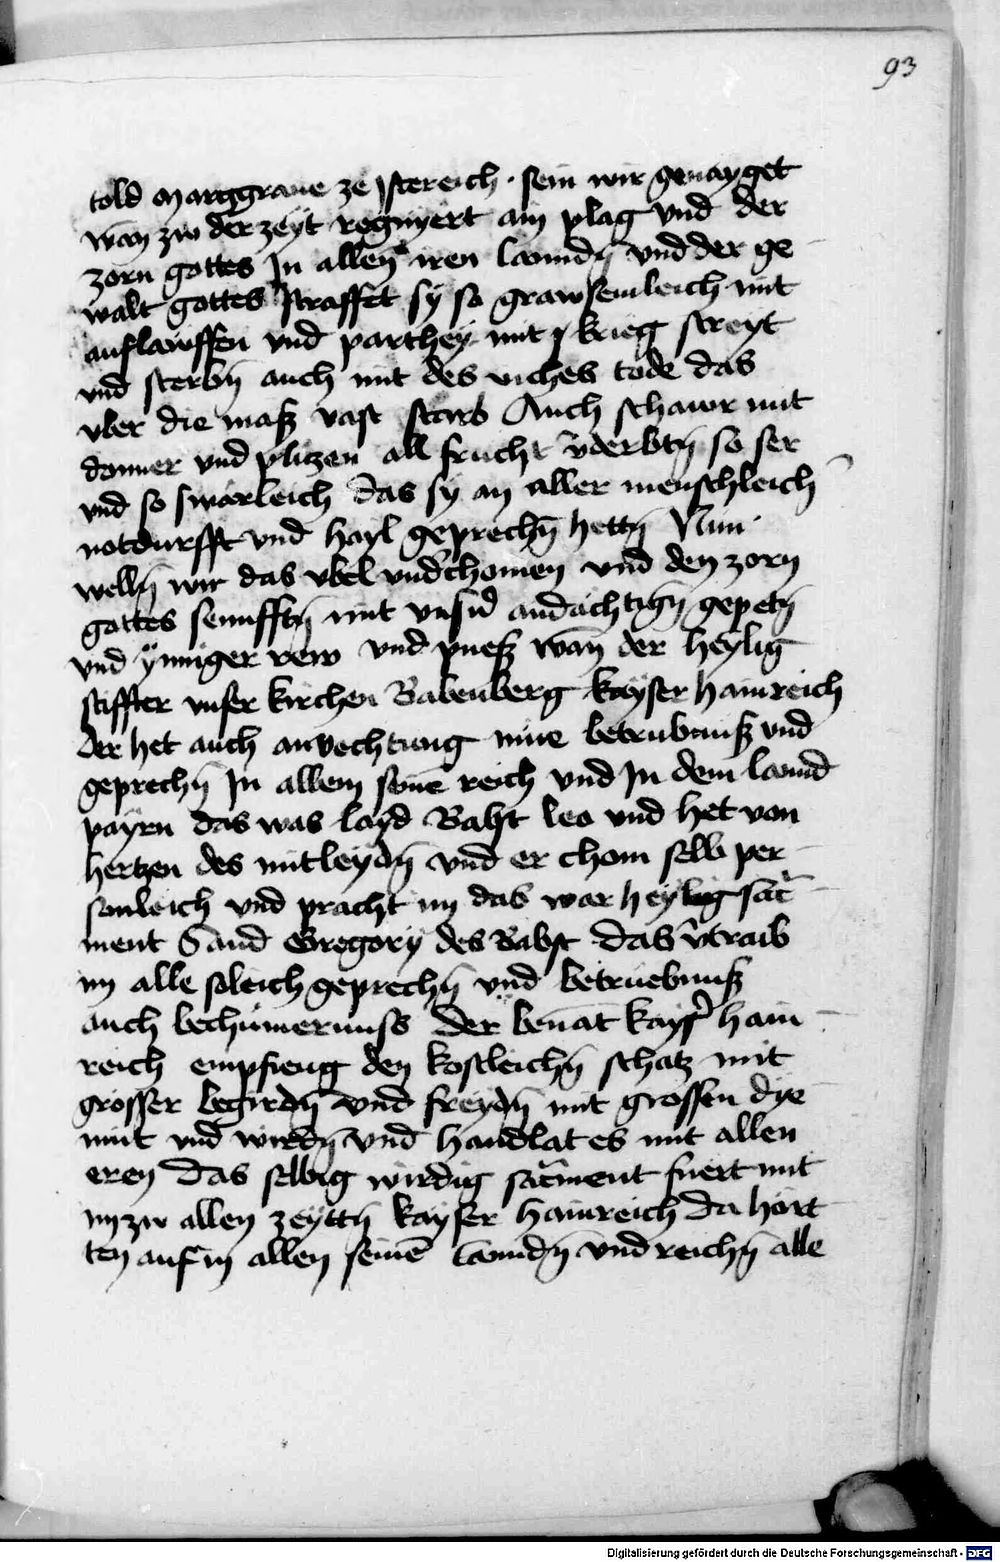 93
told marggraue ze Istereich · sein wir genayget
wān zw der zeyt regnyert ain plag vnd der
zorn gottes In allen iren lanndn̄ vnd der ge
walt gottes straffet sy so grawsenleich mit
auflawffen vnd parthey mit krieg streyt
vnd sterbn̄ auch mit des viches tode das
vber die masz vast starb Auch schawr mit
donner vnd plitzen all frucht v̄derbtn̄ so ser
vnd so swarleich das sy an aller menschleich̄
notdurfft vnd hayl geprechn̄ hettn̄ Nun
welln̄ wir das vbel vnd̕chomen vnd den zorn
gottes sennfftn̄ mit vnsn̕ andachtign̄ gepetn̄
vnd ynniger rew vnd puesz wān der heyliḡ
stiffter vnser kirchen Babenberg kayser hainreich
der het auch anvechtung mue betrubnusz vnd
geprechn̄ In allem seinē reich vnd In dem lannd
payrn das was layd Babst leo vnd het von
hertzen des mitleydn̄ vnd er chom selb per
sonleich vnd pracht im das war heylig sac̄
ment Sand Gregory des Babst das v̄traib
im alle soleich geprechn̄ vnd betruebnusz
auch bechumernuss der benāt kays̕ hain
reich empfieng den kostleichn̄ schatz mit
grosser begirdn̄ vnd freydn̄ mit grossen dye
mut vnd wirdn̄ vnd handlat es mit allen
eren das selbig wirdig sac̄ment fuert mit
im zw allen zeyttn̄ kayser hainreich da hort
ten auf in allen seinē lanndn̄ vnd reichn̄ alle
Digitalisierung gefördert durch die Deutsche Forschungsgemeinschaft - DFG